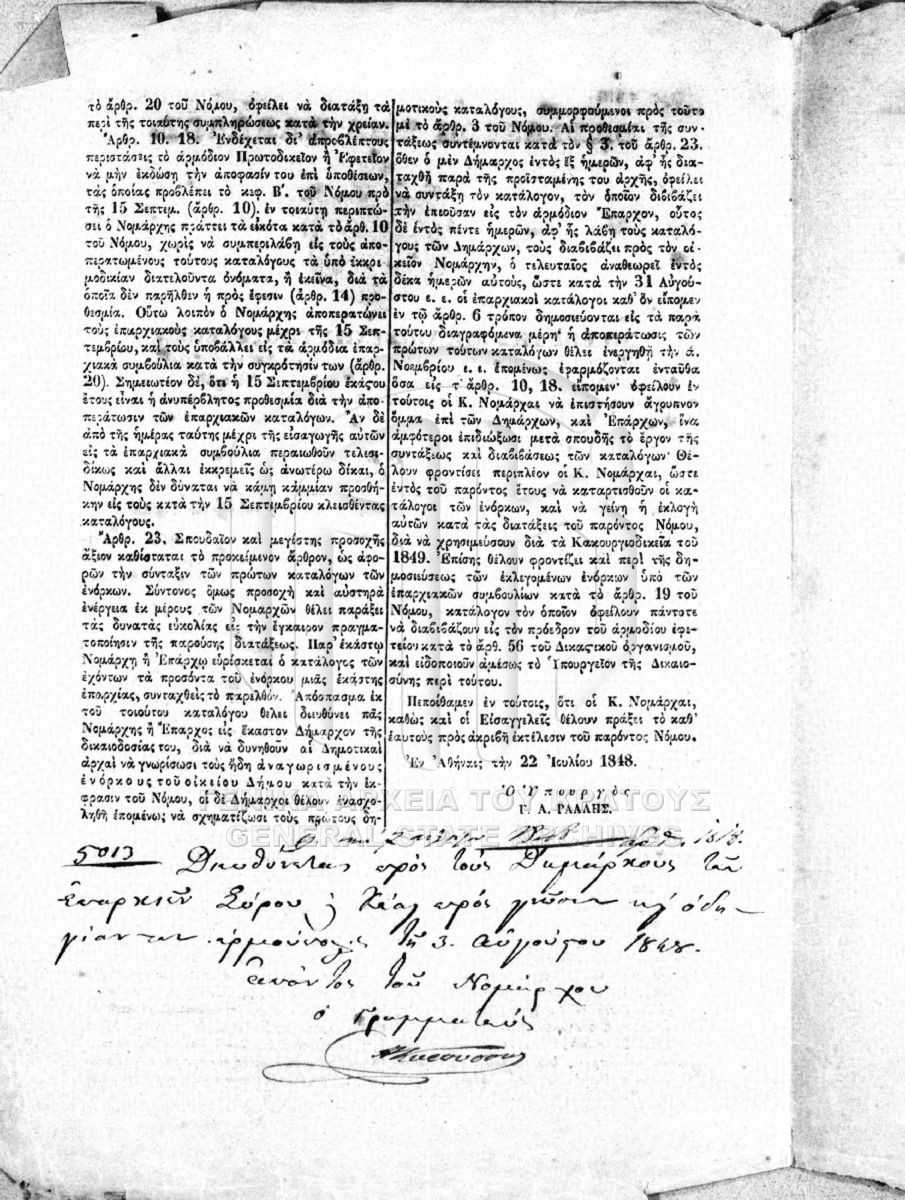 τὸ ἄρθρ. 20 τοῦ Νόμου, ὀφείλει νὰ διατάξῃ τὰ
περὶ τῆς τοιαύτης συμπληρώσεως κατὰ τὴν χρείαν.
Ἄρθρ. 10. 18. Ἐνδέχεται δι' ἀπροβλέπτους
περιστάσεις τὸ ἁρμόδιον Πρωτοδικεῖον ἢ Ἐφετεῖον
νὰ μὴν ἐκδώσῃ τὴν ἀπόφασίν του ἐπὶ ὑποθέσεων,
τὰς ὁποίας προβλέπει τὸ κεφ. Β΄. τοῦ Νόμου πρὸ
τῆς 15 Σεπτεμ. (ἄρθρ. 10). ἐν τοιαύτῃ περιπτώ-
σει ὁ Νομάρχης πράττει τὰ εἰκότα κατὰ τὸ ἄρθ. 10
τοῦ Νόμου, χωρὶς νὰ συμπεριλάβῃ εἰς τοὺς ἀπο-
περατωμένους τούτους καταλόγους τὰ ὑπὸ ἐκκρι-
μοδικίαν διατελοῦντα ὀνόματα, ἢ ἐκεῖνα, διὰ τὰ
ὁποῖα δὲν παρῆλθεν ἡ πρὸς ἔφεσιν (ἄρθρ. 14) προ-
θεσμία. Οὕτω λοιπὸν ὁ Νομάρχης ἀποπερατώνει
τοὺς ἐπαρχιακοὺς καταλόγους μέχρι τῆς 15 Σεπ-
τεμβρίου, καὶ τοὺς ὑποβάλλει εἰς τὰ ἁρμόδια ἐπαρ-
χιακὰ συμβούλια κατὰ τὴν συγκρότησίν των (ἄρθρ.
20). Σημειωτέον δὲ, ὅτι ἡ 15 Σεπτεμβρίου ἑκάστου
ἔτους εἶναι ἡ ἀνυπέρβλητος προθεσμία διὰ τὴν ἀπο-
περάτωσιν τῶν ἐπαρχιακῶν καταλόγων. Ἂν δὲ
ἀπὸ τῆς ἡμέρας ταύτης μέχρι τῆς εἰσαγωγῆς αὐτῶν
εἰς τὰ ἐπαρχιακὰ συμβούλια περαιωθοῦν τελεσι-
δίκως καὶ ἄλλαι ἐκκρεμεῖς ὡς ἀνωτέρω δίκαι, ὁ
Νομάρχης δὲν δύναται νὰ κάμῃ κᾀμμίαν προσθή-
κην εἰς τοὺς κατὰ τὴν 15 Σεπτεμβρίου κλεισθέντας
καταλόγους.
Ἄρθρ. 23. Σπουδαῖον καὶ μεγίστης προσοχῆς
ἄξιον καθίσταται τὸ προκείμενον ἄρθρον, ὡς ἀφο-
ρῶν τὴν σύνταξιν τῶν πρώτων καταλόγων τῶν
ἐνόρκων. Σύντονος ὅμως προσοχὴ καὶ αὐστηρὰ
ἐνέργεια ἐκ μέρους τῶν Νομαρχῶν θέλει παράξει
τὰς δυνατὰς εὐκολίας εἰς τὴν ἔγκαιρον πραγμα-
τοποίησιν τῆς παρούσης διατάξεως. Παρ' ἑκάστῳ
Νομάρχῃ ἢ Ἐπάρχῳ εὑρίσκεται ὁ κατάλογος τῶν
ἐχόντων τὰ προσόντα τοῦ ἐνόρκου μιᾶς ἑκάστης
ἐπαρχίας, συνταχθεὶς τὸ παρελθόν. Ἀπόσπασμα ἐκ
τοῦ τοιούτου καταλόγου θέλει διευθύνει πᾶς
Νομάρχης ἢ Ἔπαρχος εἰς ἕκαστον Δήμαρχον τῆς
δικαιοδοσίας του, διὰ νὰ δυνηθοῦν αἱ Δημοτικαὶ
ἀρχαὶ νὰ γνωρίσωσι τοὺς ἤδη ἀναγωρισμένους
ἐνόρκους τοῦ οἰκείου Δήμου κατὰ τὴν ἔκ-
φρασιν τοῦ Νόμου, οἱ δὲ Δήμαρχοι θέλουν ἐνασχο-
ληθῆ ἑπομένως νὰ σχηματίζωσι τοὺς πρώτους δη-
μοτικοὺς καταλόγους, συμμορφούμενοι πρὸς τοῦτο
μὲ τὸ ἄρθρ. 3 τοῦ Νόμου. Αἱ προθεσμίαι τῆς συν-
τάξεως συντέμνονται κατὰ τὸν § 3. τοῦ ἄρθρ. 23.
ὅθεν ὁ μὲν Δήμαρχος ἐντὸς ἓξ ἡμερῶν, ἀφ' ἧς δια-
ταχθῇ παρὰ τῆς προϊσταμένης του ἀρχῆς, ὀφείλει
νὰ συντάξῃ τὸν κατάλογον, τὸν ὁποῖον διβιβάζει
τὴν ἐπιοῦσαν εἰς τὸν ἁρμόδιον Ἔπαρχον, οὗτος
δὲ ἐντὸς πέντε ἡμερῶν, ἀφ' ἧς λάβῃ τοὺς καταλό-
γους τῶν Δημάρχων, τοὺς διαβιβάζει πρὸς τὸν οἰ-
κεῖον Νομάρχην, ὁ τελευταῖος ἀναθεωρεῖ ἐντὸς
δέκα ἡμερῶν αὐτοὺς, ὥστε κατὰ τὴν 31 Αὐγού-
στου ἐ. ἔ. οἱ ἐπαρχιακοὶ κατάλογοι καθ' ὃν εἴπομεν
ἐν τῷ ἄρθρ. 6 τρόπον δημοσιεύονται εἰς τὰ παρὰ
τούτου διαγραφόμενα μέρη· ἡ ἀποπεράτωσις τῶν
πρώτων τούτων καταλόγων θέλει ἐνεργηθῆ τὴν ά.
Νοεμβρίου ἐ. ἔ. ἑπομένως ἐφαρμόζονται ἐνταῦθα
ὅσα εἰς τ' ἄρθρ. 10, 18. εἴπομεν· ὀφείλουν ἐν
τούτοις οἱ Κ. Νομάρχαι νὰ ἐπιστήσουν ἄγρυπνον
ὄμμα ἐπὶ τῶν Δημάρχων, καὶ Ἐπάρχων, ἵνα
ἀμφότεροι ἐπιδιώξωσι μετὰ σπουδῆς τὸ ἔργον τῆς
συντάξεως καὶ διαβιβάσεως τῶν καταλόγων· Θέ-
λουν φροντίσει περιπλέον οἱ Κ. Νομάρχαι, ὥστε
ἐντὸς τοῦ παρόντος ἔτους νὰ καταρτισθοῦν οἱ κα-
τάλογοι τῶν ἐνόρκων, καὶ νὰ γείνῃ ἡ ἐκλογὴ
αὐτῶν κατὰ τὰς διατάξεις τοῦ παρόντος Νόμου,
διὰ νὰ χρησιμεύσουν διὰ τὰ Κακουργιοδικεῖα τοῦ
1849. Ἐπίσης θέλουν φροντίζει καὶ περὶ τῆς δη-
μοσιεύσεως τῶν ἐκλεγομένων ἐνόρκων ὑπὸ τῶν
ἐπαρχιακῶν συμβουλίων κατὰ τὸ ἄρθρ. 19 τοῦ
Νόμου, κατάλογον τὸν ὁποῖον ὀφείλουν πάντοτε
νὰ διαβιβάζουν εἰς τὸν πρόεδρον τοῦ ἁρμοδίου ἐφε-
τείου κατὰ τὸ ἄρθ. 56 τοῦ Δικαστικοῦ ὀργανισμοῦ,
καὶ εἰδοποιοῦν ἀμέσως τὸ Ὑπουργεῖον τῆς Δικαιο-
σύνης περὶ τούτου.
Πεποίθαμεν ἐν τούτοις, ὅτι οἱ Κ. Νομάρχαι,
καθὼς καὶ οἱ Εἰσαγγελεῖς θέλουν πράξει τὸ καθ'
ἑαυτοὺς πρὸς ἀκριβῆ ἐκτέλεσιν τοῦ παρόντος Νόμου.
Ἐν Ἀθήναις τὴν 22 Ἰουλίου 1848.
Ὁ Ὑπουργὸς
Γ. Α. ΡΑΛΛΗΣ.
ΓΕΝΙΚΑ ΑΡΧΕΙΑ ΤΟΥ ΚΡΑΤΟΥΣ
GENERAL STATE ARCHIVES
5013 Διευθύνεται πρὸς τοὺς Δημάρχους τῶν
Ἐπαρχιῶν Σύρου ϗ Κέας πρὸς γνῶσιν ϗ ὁδη-
γίαν των. Ἑρμούπολις τῇ 3. Αὐγούστου 1848.
Ἀπόντος τοῦ Νομάρχου
ὁ Γραμματεὺς